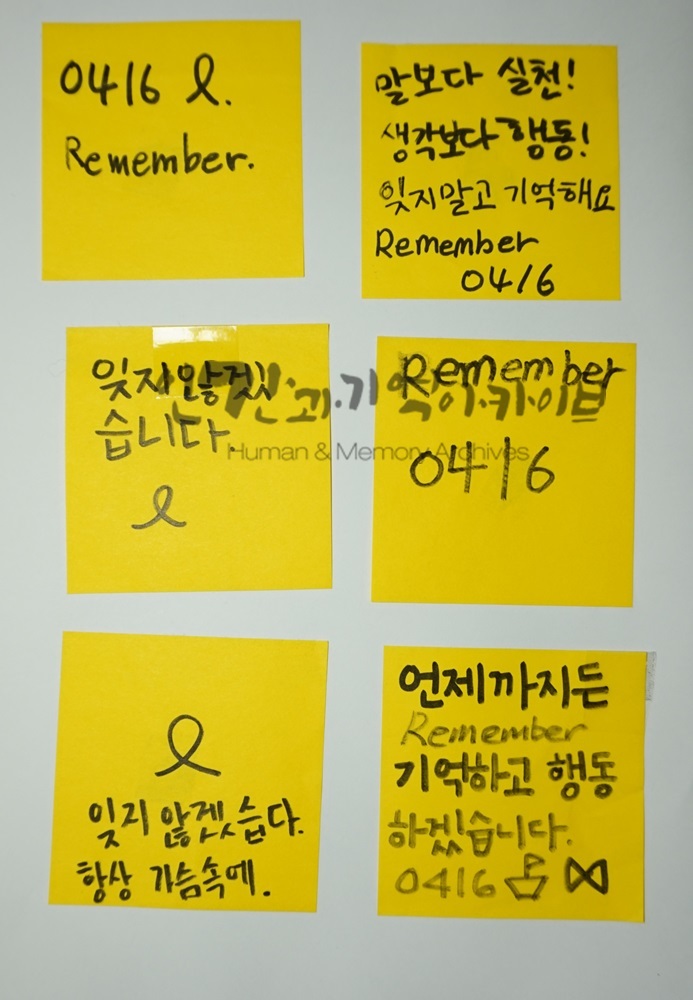 0416
Remember.
말보다 실천!
생각보다 행동!
잊지말고 기억해요
Remember
0416
잊지않겠
습니다.
Remember
0416
인간과기억아카이브
Human & Memory Archives
잊지 않겠습다.
항상 가슴속에.
언제까지든
Remember
기억하고 행동
하겠습니다.
0416